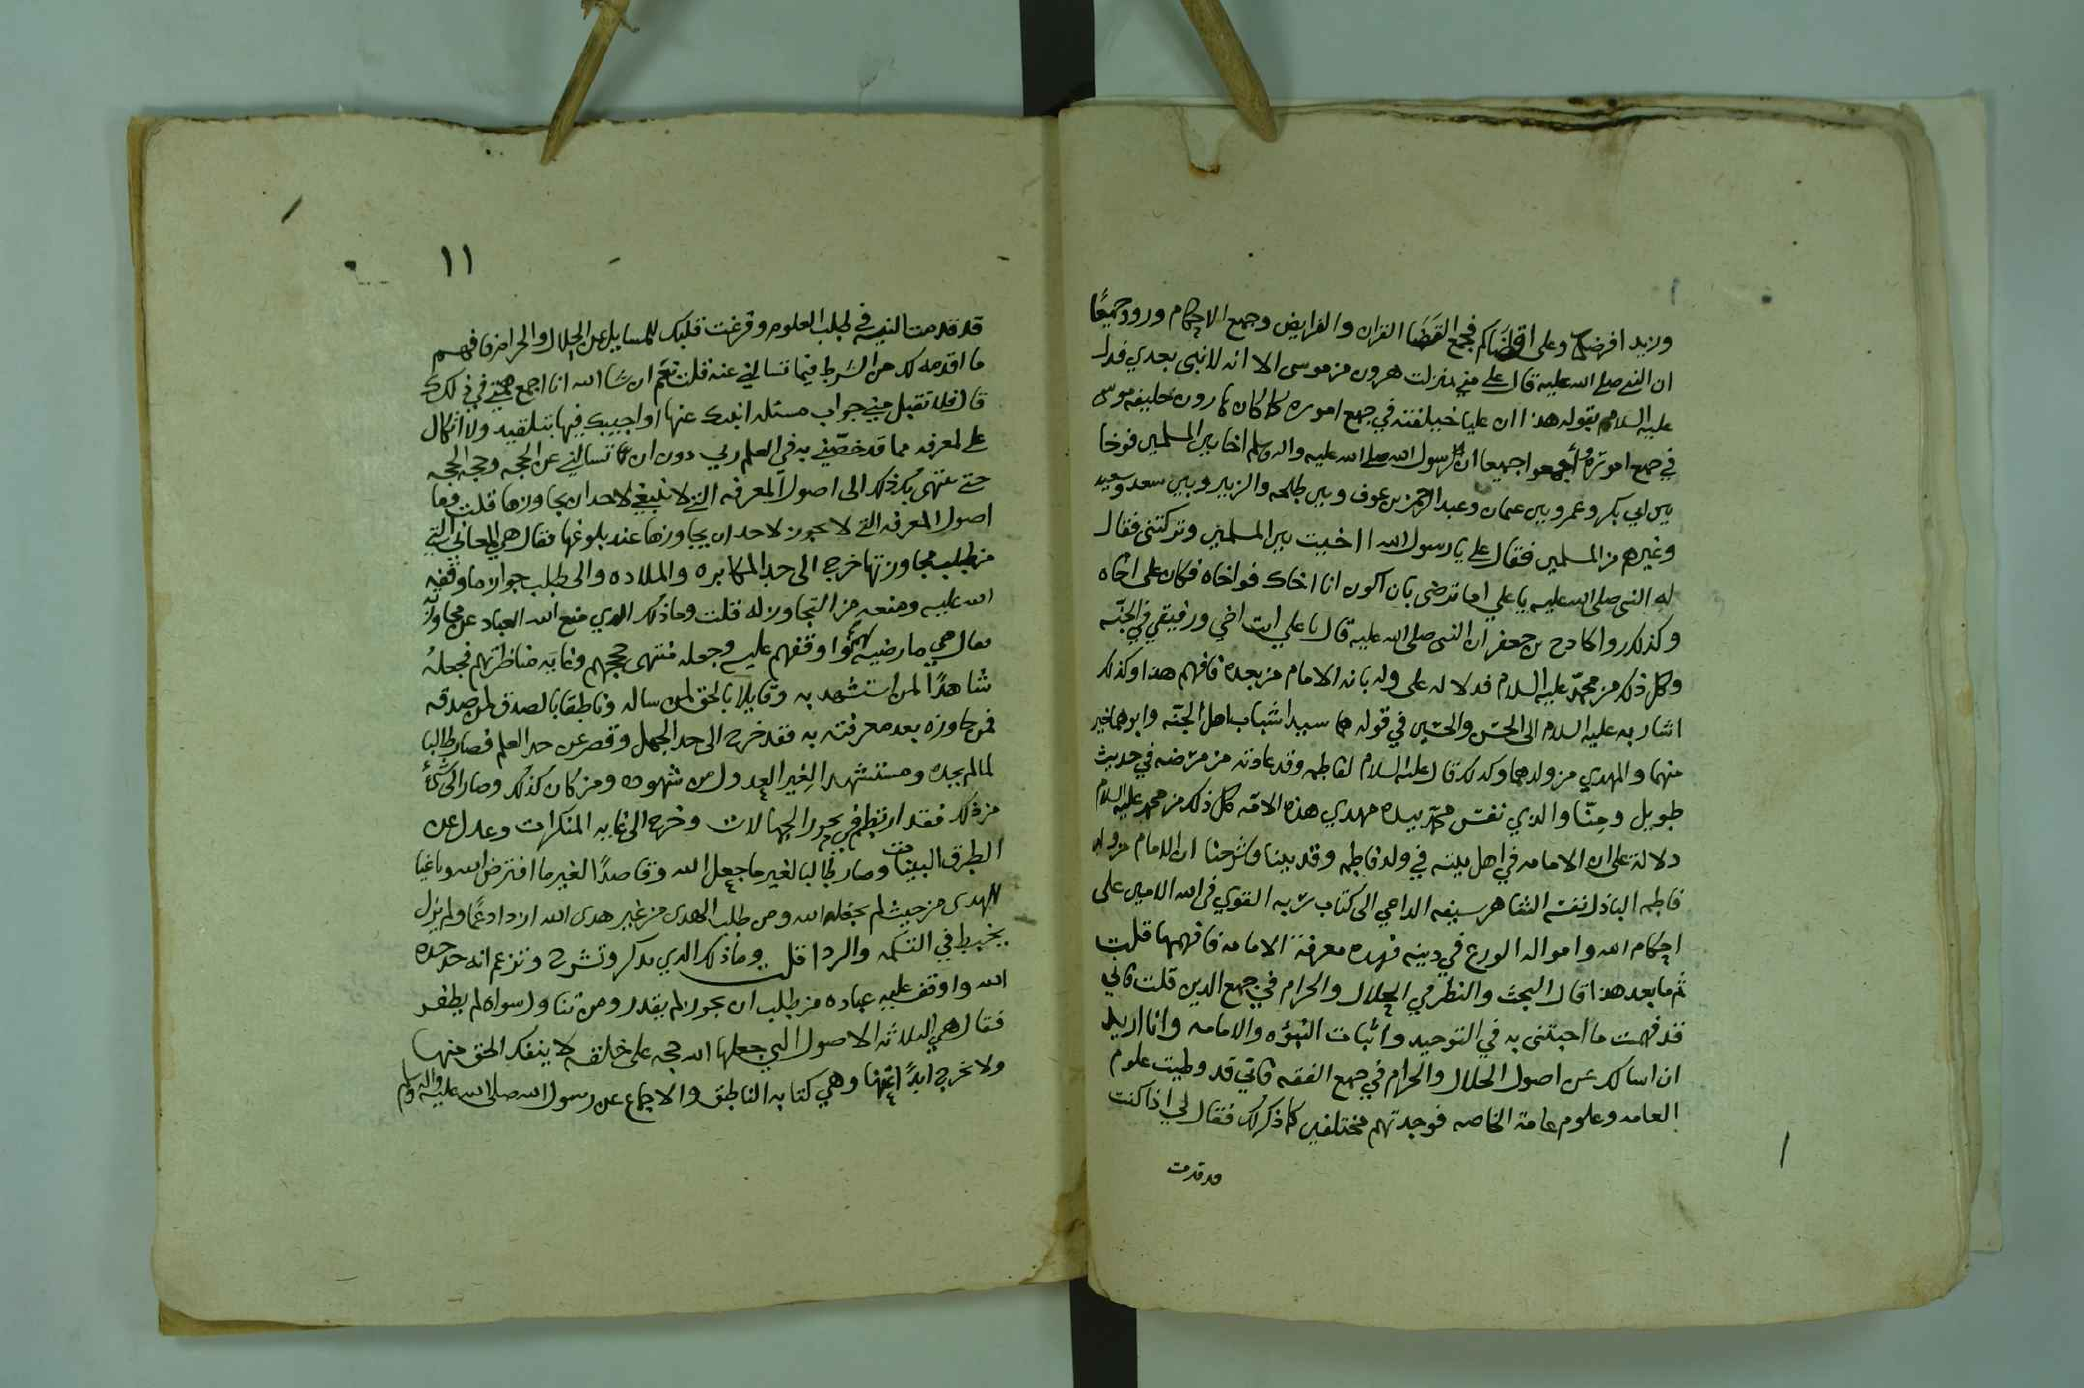 وزيد افرضكم وعلي اقضاكم فجمع القضا القران والفرايض وجمع الاحكام وروو جميعًا
ان النبي صلى الله عليه قال علي مني بمنزلت هرون من موسى الا انه لا نبي بعدي فدل
عليه السلام بقوله هذا ان عليا خليفته في جمع اموره كما كان هارون خليفه موسى
في جمع اموره واجمعوا جميعا ان رسول الله صلى الله عليه واله وسلم اخا بين المسلمين فوخا
بين ابي بكر وعمر وبين عثمان وعبد الرحمن بن عوف وبين طلحه والزبير وبين سعد وسعيد
وغيرهم من المسلمين فقال علي يا رسول الله ااخيت بين المسلمين وتركتني فقال
له النبي صلى الله عليه يا علي اما ترضى بان اكون انا اخاك فواخاه فكان علي اخاه
وكذلك روا كادح بن جعفر ان النبي صلى الله عليه قال يا علي انت اخي ورفيقي في الجنّه
وكل ذلك من محمّد عليه السلام فدلاله على وله بانه الامام من بعده فافهم هذا وكذلك
اشار به عليه السلام الى الحسن والحسين في قوله هما سيدا شباب اهل الجنّه وابوهما خير
منهما والمهدي من ولدهما وكذلك قال عليه السلام لفاطمه وقد عادته من مرضه في حديث
طويل ومنّا والذي نفس محمّد بيده مهدي هذه الامّه كل ذلك من محمد عليه السلام
دلالة على ان الامامه في اهل بيته في ولد فاطمه وقد بينا وشرحنا ان الامام من ولد
فاطمه الباذل نفسه الشاهر سيفه الداعي الى كتاب ربه القوي في الله الامين على
احكام الله وامواله الورع في دينه فهذه معرفة الامامه فافهمها قلت
ثم ما بعد هذا قال البحث والنظر في الحلال والحرام في جمع الدين قلت فاني
قد فهمت ما اجبتني به في التوحيد واثبات النبؤه والامامه وانا اريد
ان اسالك عن اصول الحلال والحرام في جمع الفقه فاني قد وطيت علوم
العامه وعلوم عامة الخاصه فوجدتهم مختلفين كما ذكر لك فقال لي اذا كنت
قد قدمت
١١
قد قدمت النيه في طلب العلوم وفرغت قلبك للمسايل عن الحلال والحرام فافهم
ما اقدمه لك من الشرط فيما تسالني عنه قلت نعم ان شا الله انا اجمع همتي في ذلك
قال فلا تقبل مني جواب مسئله انبيك عنها او اجيبك فيها بتلقيد ولا اتكال
على المعرفه مما قد خصّني به في العلم ربي دون ان تسالني عن الحجه وحجه الحجه
حتى تنتهي بك ذلك الى اصول المعرفه التي لا ينبغي لاحد ان يجاوزها قلت فما
اصول المعرفه التي لا يجوز لاحد ان يجاوزها عند بلوغها فقال هي المعاني التي
من طلب مجاوزتها خرج الى حد المكابره والملاده والى طلب جواز ما وقفه
الله عليه ومنعه من التجاوز له قلت وما ذلك الذي منع الله العباد عن مجاوزته
فقال هي ما رضيه لهم واوقفهم عليه وجعله منتهى حججهم وغايه مناظرتهم فجعله
شاهدًا لمن استشهد به وقايلا بالحق لمن ساله وناطقا بالصدق لمن صدقه
فمن جاوزه بعد معرفته به فقد خرج الى حد الجهل وقصر عن حد العلم فصار طالبا
لما لم يجده ومستشهدا لغير العدول من شهوده ومن كان كذلك وصار الى شيء
من ذلك فقد ارتطم في بحور الجهالات وخرج الى غايه المنكرات وعدل عن
الطرق البينات وصار طالبا لغير ما جعل الله وقاصدًا لغير ما افترض الله وباغيا
للهدى من حيث لم يجعله الله ومن طلب الهدى من غير هدى الله ازداد عمًا ولم يزل
يخبط في التكمه والردا قلت وما ذلك الذي تذكر وتشرح وتزعم انه حد حده
الله واوقف عليه عباده من طلب ان يجوزه لم يقدر ومن تناول سواه لم يظفر
فقال هي الثلاثه الاصول التي جعلها الله حجه على خلقه لا ينفك الحق منها
ولا يخرج ابدًا عنها وهي كتابه الناطق والاجماع عن رسول الله صلى الله عليه واله وسلم